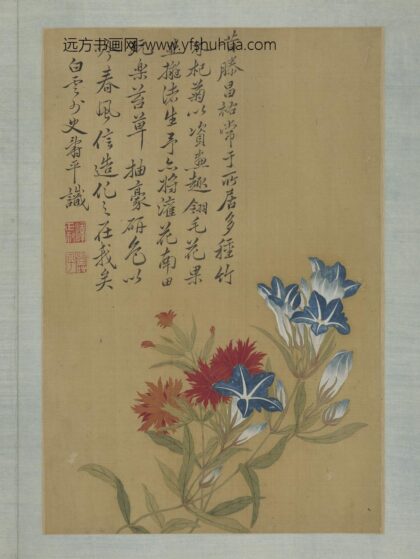 远方书画网·www.yfshuhua.com
昔滕昌祐常于所居多種竹
石杞菊以資畫趣翎毛花果
並擬諸生予亦將灌花南田
玩樂苔草抽豪研色以
吟春風信造化之在我矣
白雲外史壽平識